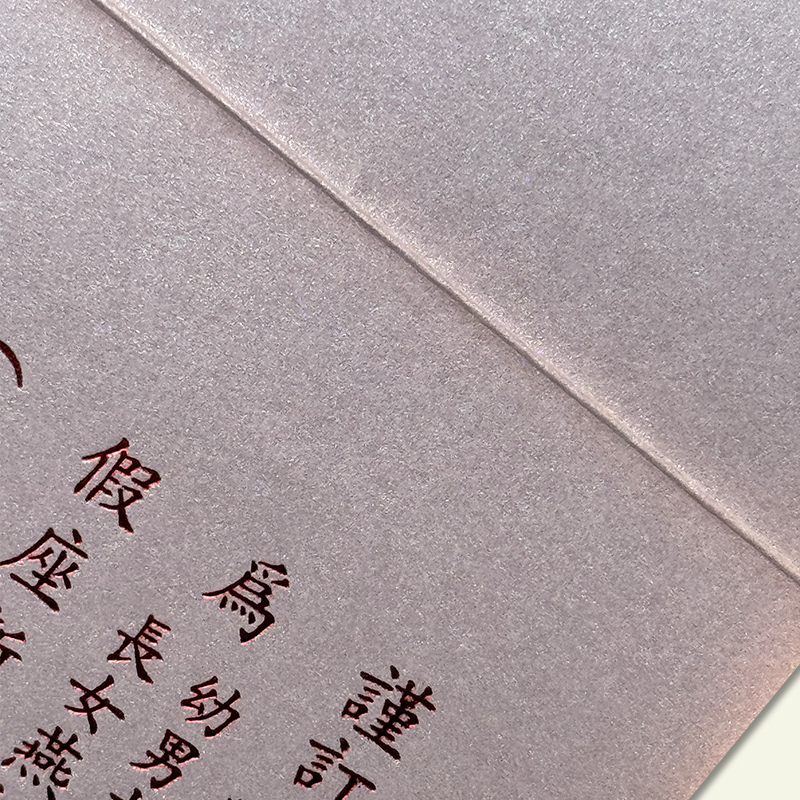 謹訂
為
幼男
長女燕
假座